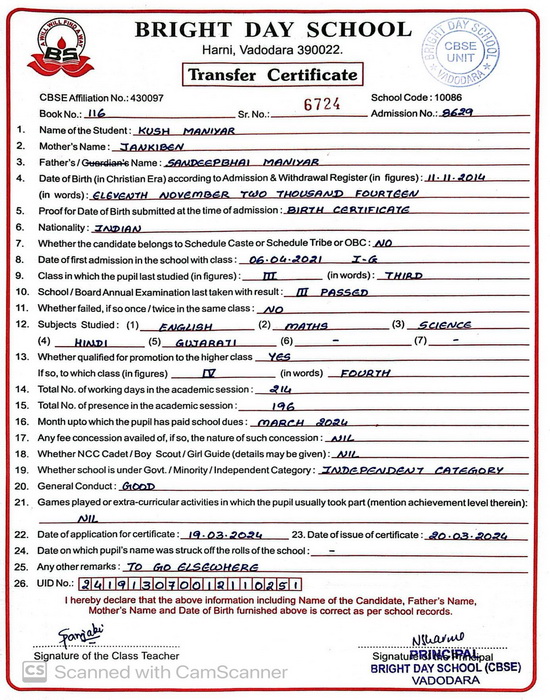 A WILL WILL FIND A WAY
BS
BRIGHT DAY SCHOOL
Harni, Vadodara 390022.
Transfer Certificate
BRIGHT DAY SCHOOL
CBSE
UNIT
VADODARA
CBSE Affiliation No.: 430097 School Code : 10086
Book No.: 116 Sr. No.: 6724 Admission No.: 8629
1. Name of the Student : KUSH MANIYAR
2. Mother's Name : JANKIBEN
3. Father's / Guardian's Name : SANDEEPBHAI MANIYAR
4. Date of Birth (in Christian Era) according to Admission & Withdrawal Register (in figures) : 11-11-2014
(in words) : ELEVENTH NOVEMBER TWO THOUSAND FOURTEEN
5. Proof for Date of Birth submitted at the time of admission : BIRTH CERTIFICATE
6. Nationality : INDIAN
7. Whether the candidate belongs to Schedule Caste or Schedule Tribe or OBC : NO
8. Date of first admission in the school with class : 06.04.2021 I-G
9. Class in which the pupil last studied (in figures) : III (in words) : THIRD
10. School / Board Annual Examination last taken with result : III PASSED
11. Whether failed, if so once / twice in the same class : NO
12. Subjects Studied : (1) ENGLISH (2) MATHS (3) SCIENCE
(4) HINDI (5) GUJARATI (6) - (7) -
13. Whether qualified for promotion to the higher class YES
If so, to which class (in figures) IV (in words) FOURTH
14. Total No. of working days in the academic session : 214
15. Total No. of presence in the academic session : 196
16. Month upto which the pupil has paid school dues : MARCH 2024
17. Any fee concession availed of, if so, the nature of such concession : NIL
18. Whether NCC Cadet / Boy Scout / Girl Guide (details may be given) : NIL
19. Whether school is under Govt. / Minority / Independent Category : INDEPENDENT CATEGORY
20. General Conduct : GOOD
21. Games played or extra-curricular activities in which the pupil usually took part (mention achievement level therein) :
NIL
22. Date of application for certificate : 19.03.2024 23. Date of issue of certificate : 20.03.2024
24. Date on which pupil's name was struck off the rolls of the school : -
25. Any other remarks : TO GO ELSEWHERE
26. UID No.: 241913070012110251
I hereby declare that the above information including Name of the Candidate, Father's Name,
Mother's Name and Date of Birth furnished above is correct as per school records.
Signature of the Class Teacher Signature of the Principal
PRINCIPAL
BRIGHT DAY SCHOOL (CBSE)
VADODARA
CS Scanned with CamScanner